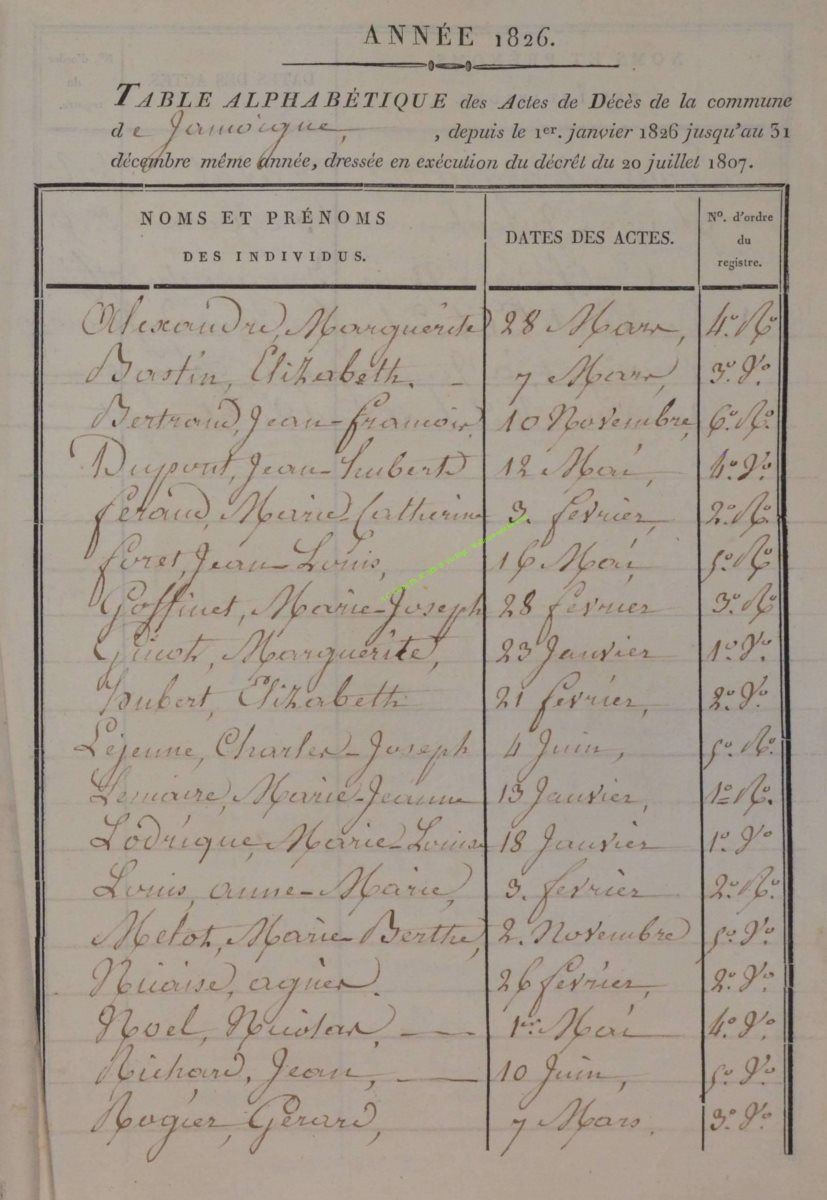 ANNÉE 1826.
TABLE ALPHABÉTIQUE des Actes de Décès de la commune
de Jamoigne, , depuis le 1er. janvier 1826 jusqu'au 31
décembre même année, dressée en exécution du décrêt du 20 juillet 1807.
NOMS ET PRÉNOMS DES INDIVIDUS. DATES DES ACTES. No. d'ordre du registre.
Alexandre, Marguérite 28 Mars, 4o. Ro
Bastin, Elizabeth. - 7 Mars, 3o. Vo.
Bertrand, Jean-françois, 10 Novembre, 6o. Ro.
Dupont, Jean-hubert 12 Mai, 4o. Vo.
feraud, Marie-Catherine 3. fevrier, 2o. Ro.
foret, Jean-Louis, 16 Mai, 5o. Ro
Goffinet, Marie-Joseph 28 fevrier 3o. Ro
Ginot, Marguérite, 23 Janvier 1o. Vo.
hubert, Elizabeth 21 fevrier, 2o. Vo.
Lejeune, Charles-Joseph 4 Juin, 5o. Ro.
Lemaire, Marie-Jeanne 13 Janvier, 1o. Ro.
Lodrigue, Marie-Louise 18 Janvier 1o. Vo
Louis, anne-Marie, 3. fevrier 2o. Ro.
Melot, Marie-Berthe, 2. Novembre 5o. Vo.
Nicaise, agnes. 26 fevrier, 2o. Vo.
Noel, Nicolas, — 1er Mai 4o. Vo
Richard, Jean, — 10 Juin, 5o. Vo.
Rogier, Gérard, 7 Mars. 3o. Vo.